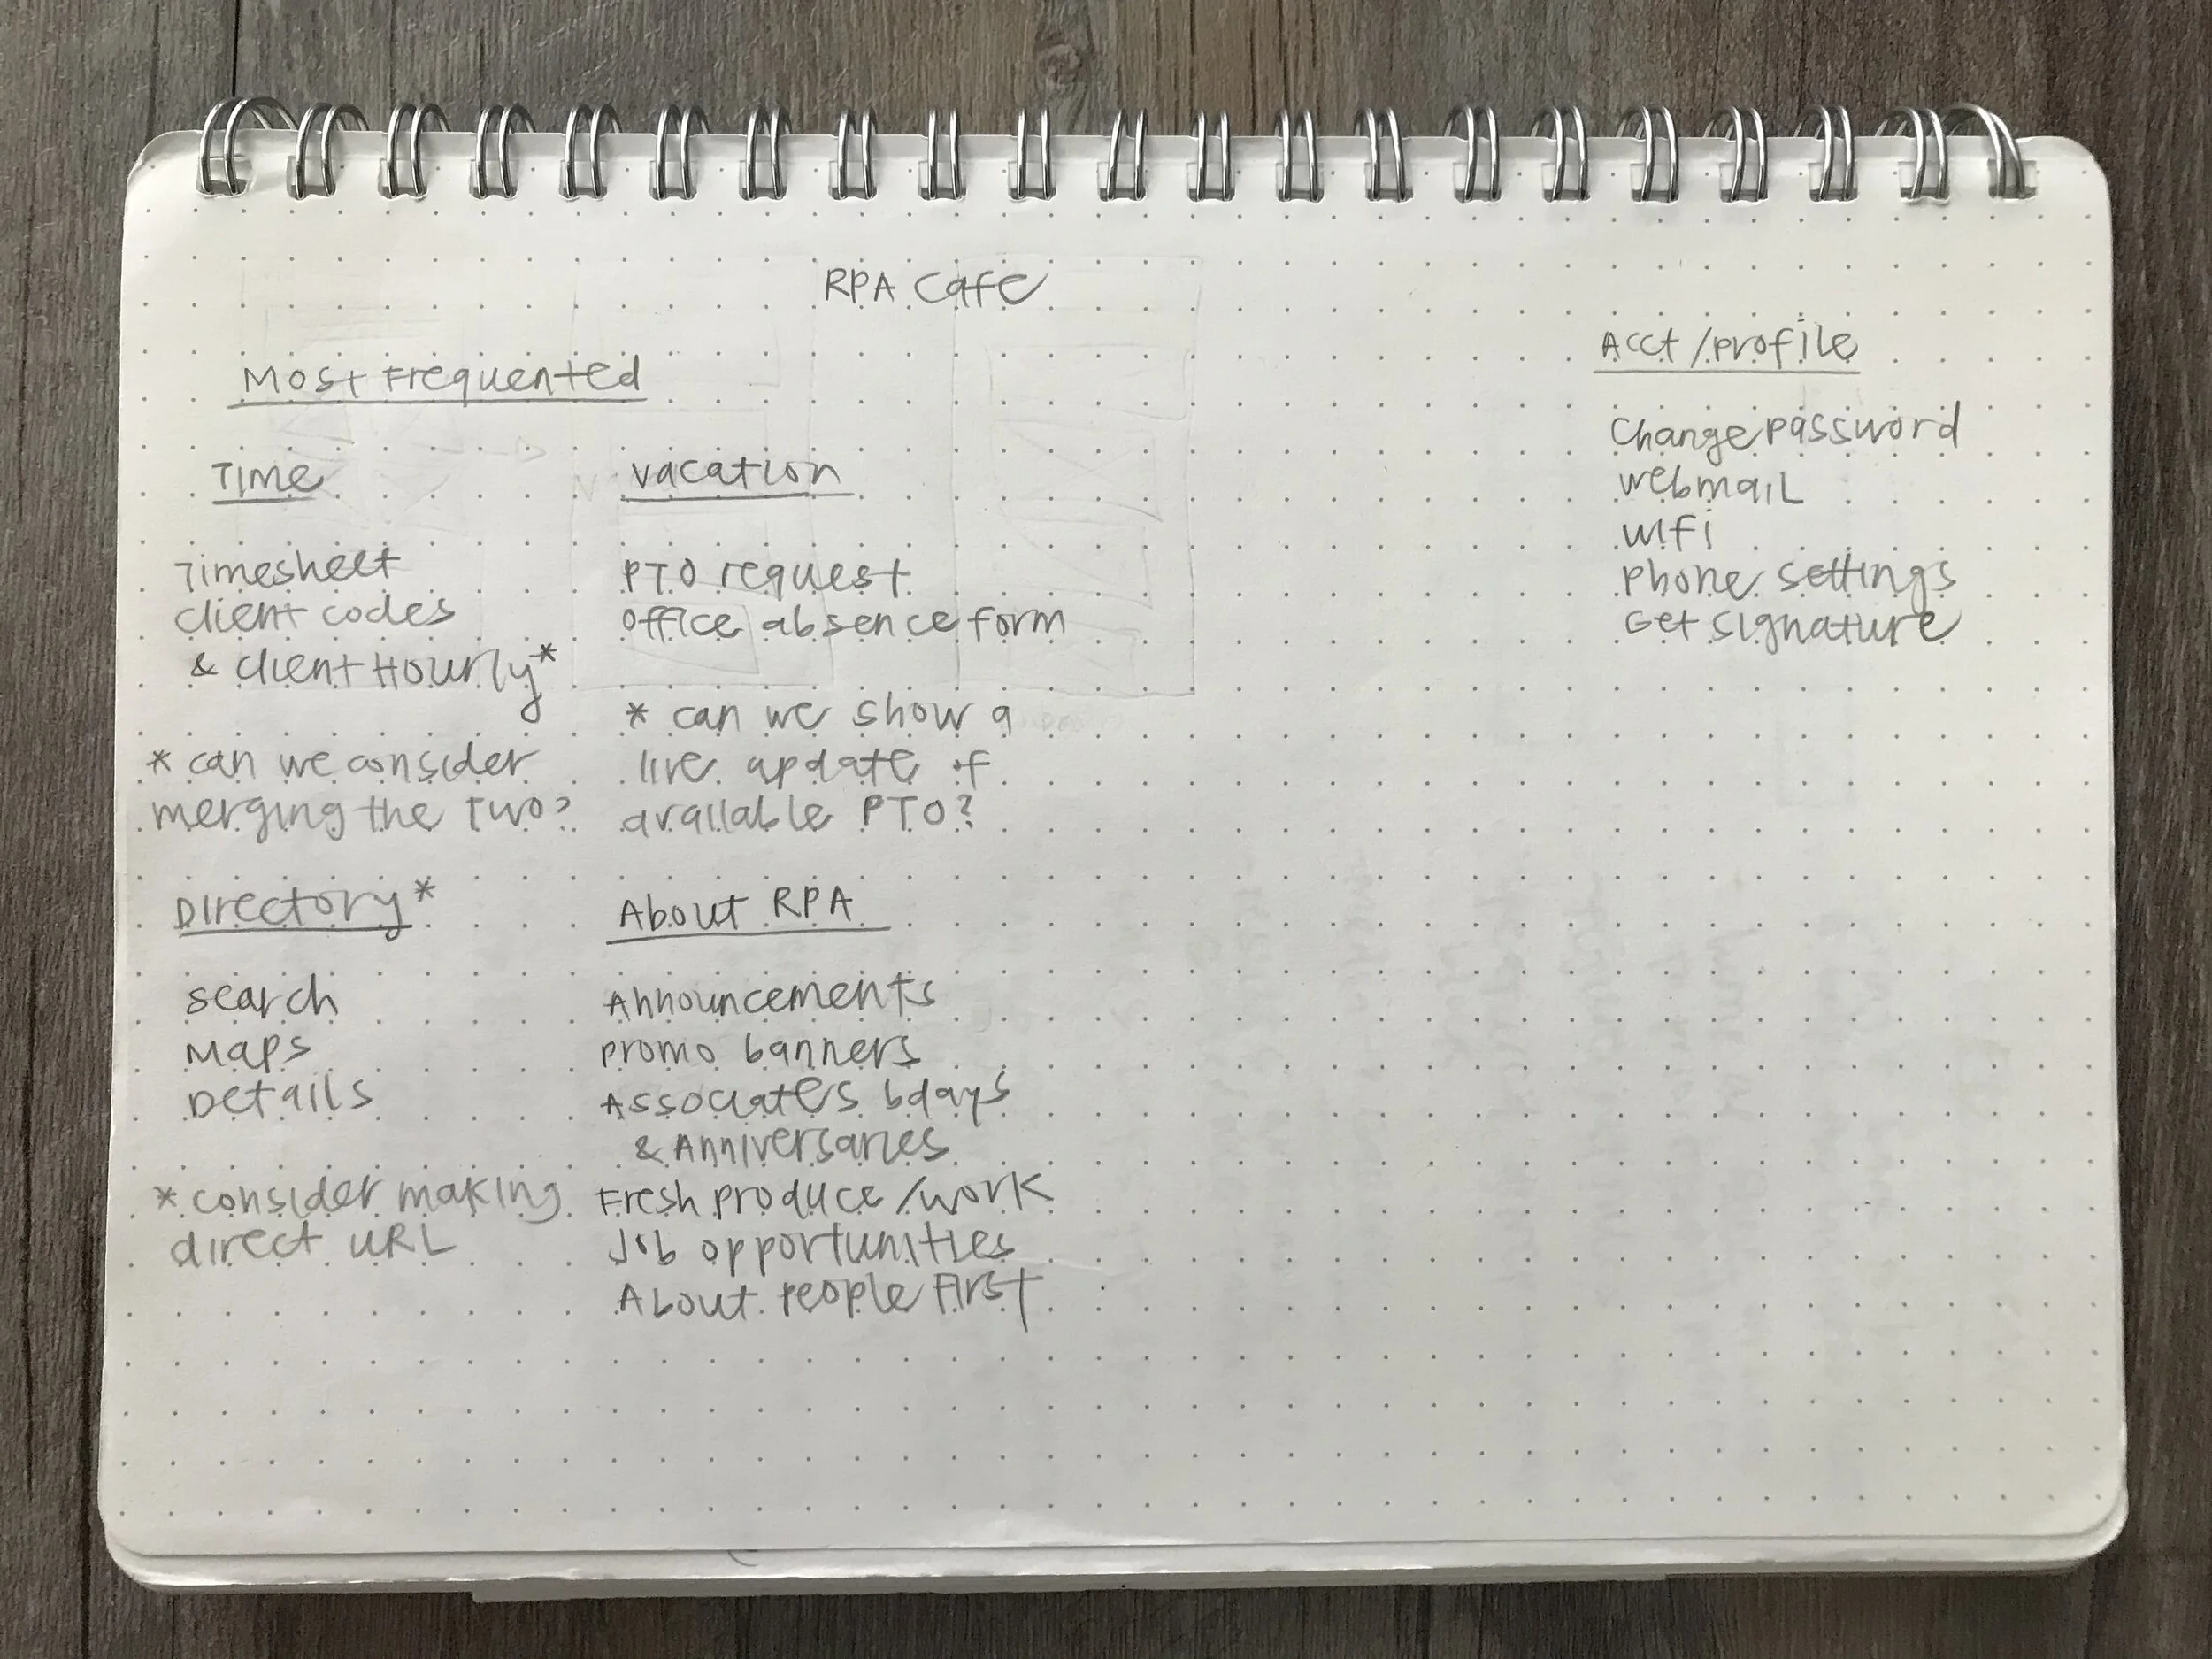 RPA Cafe
Most Frequented
Time
Timesheet
client codes
& client Hourly*
* can we consider
merging the two?
Vacation
PTO request
Office absence form
* can we show a
live update of
available PTO?
Directory*
Search
Maps
Details
* consider making
direct URL
About RPA
Announcements
Promo banners
Associates bdays
& Anniversaries
Fresh produce/work
Job opportunities
About People First
Acct/profile
Change password
webmail
wifi
Phone settings
Get signature